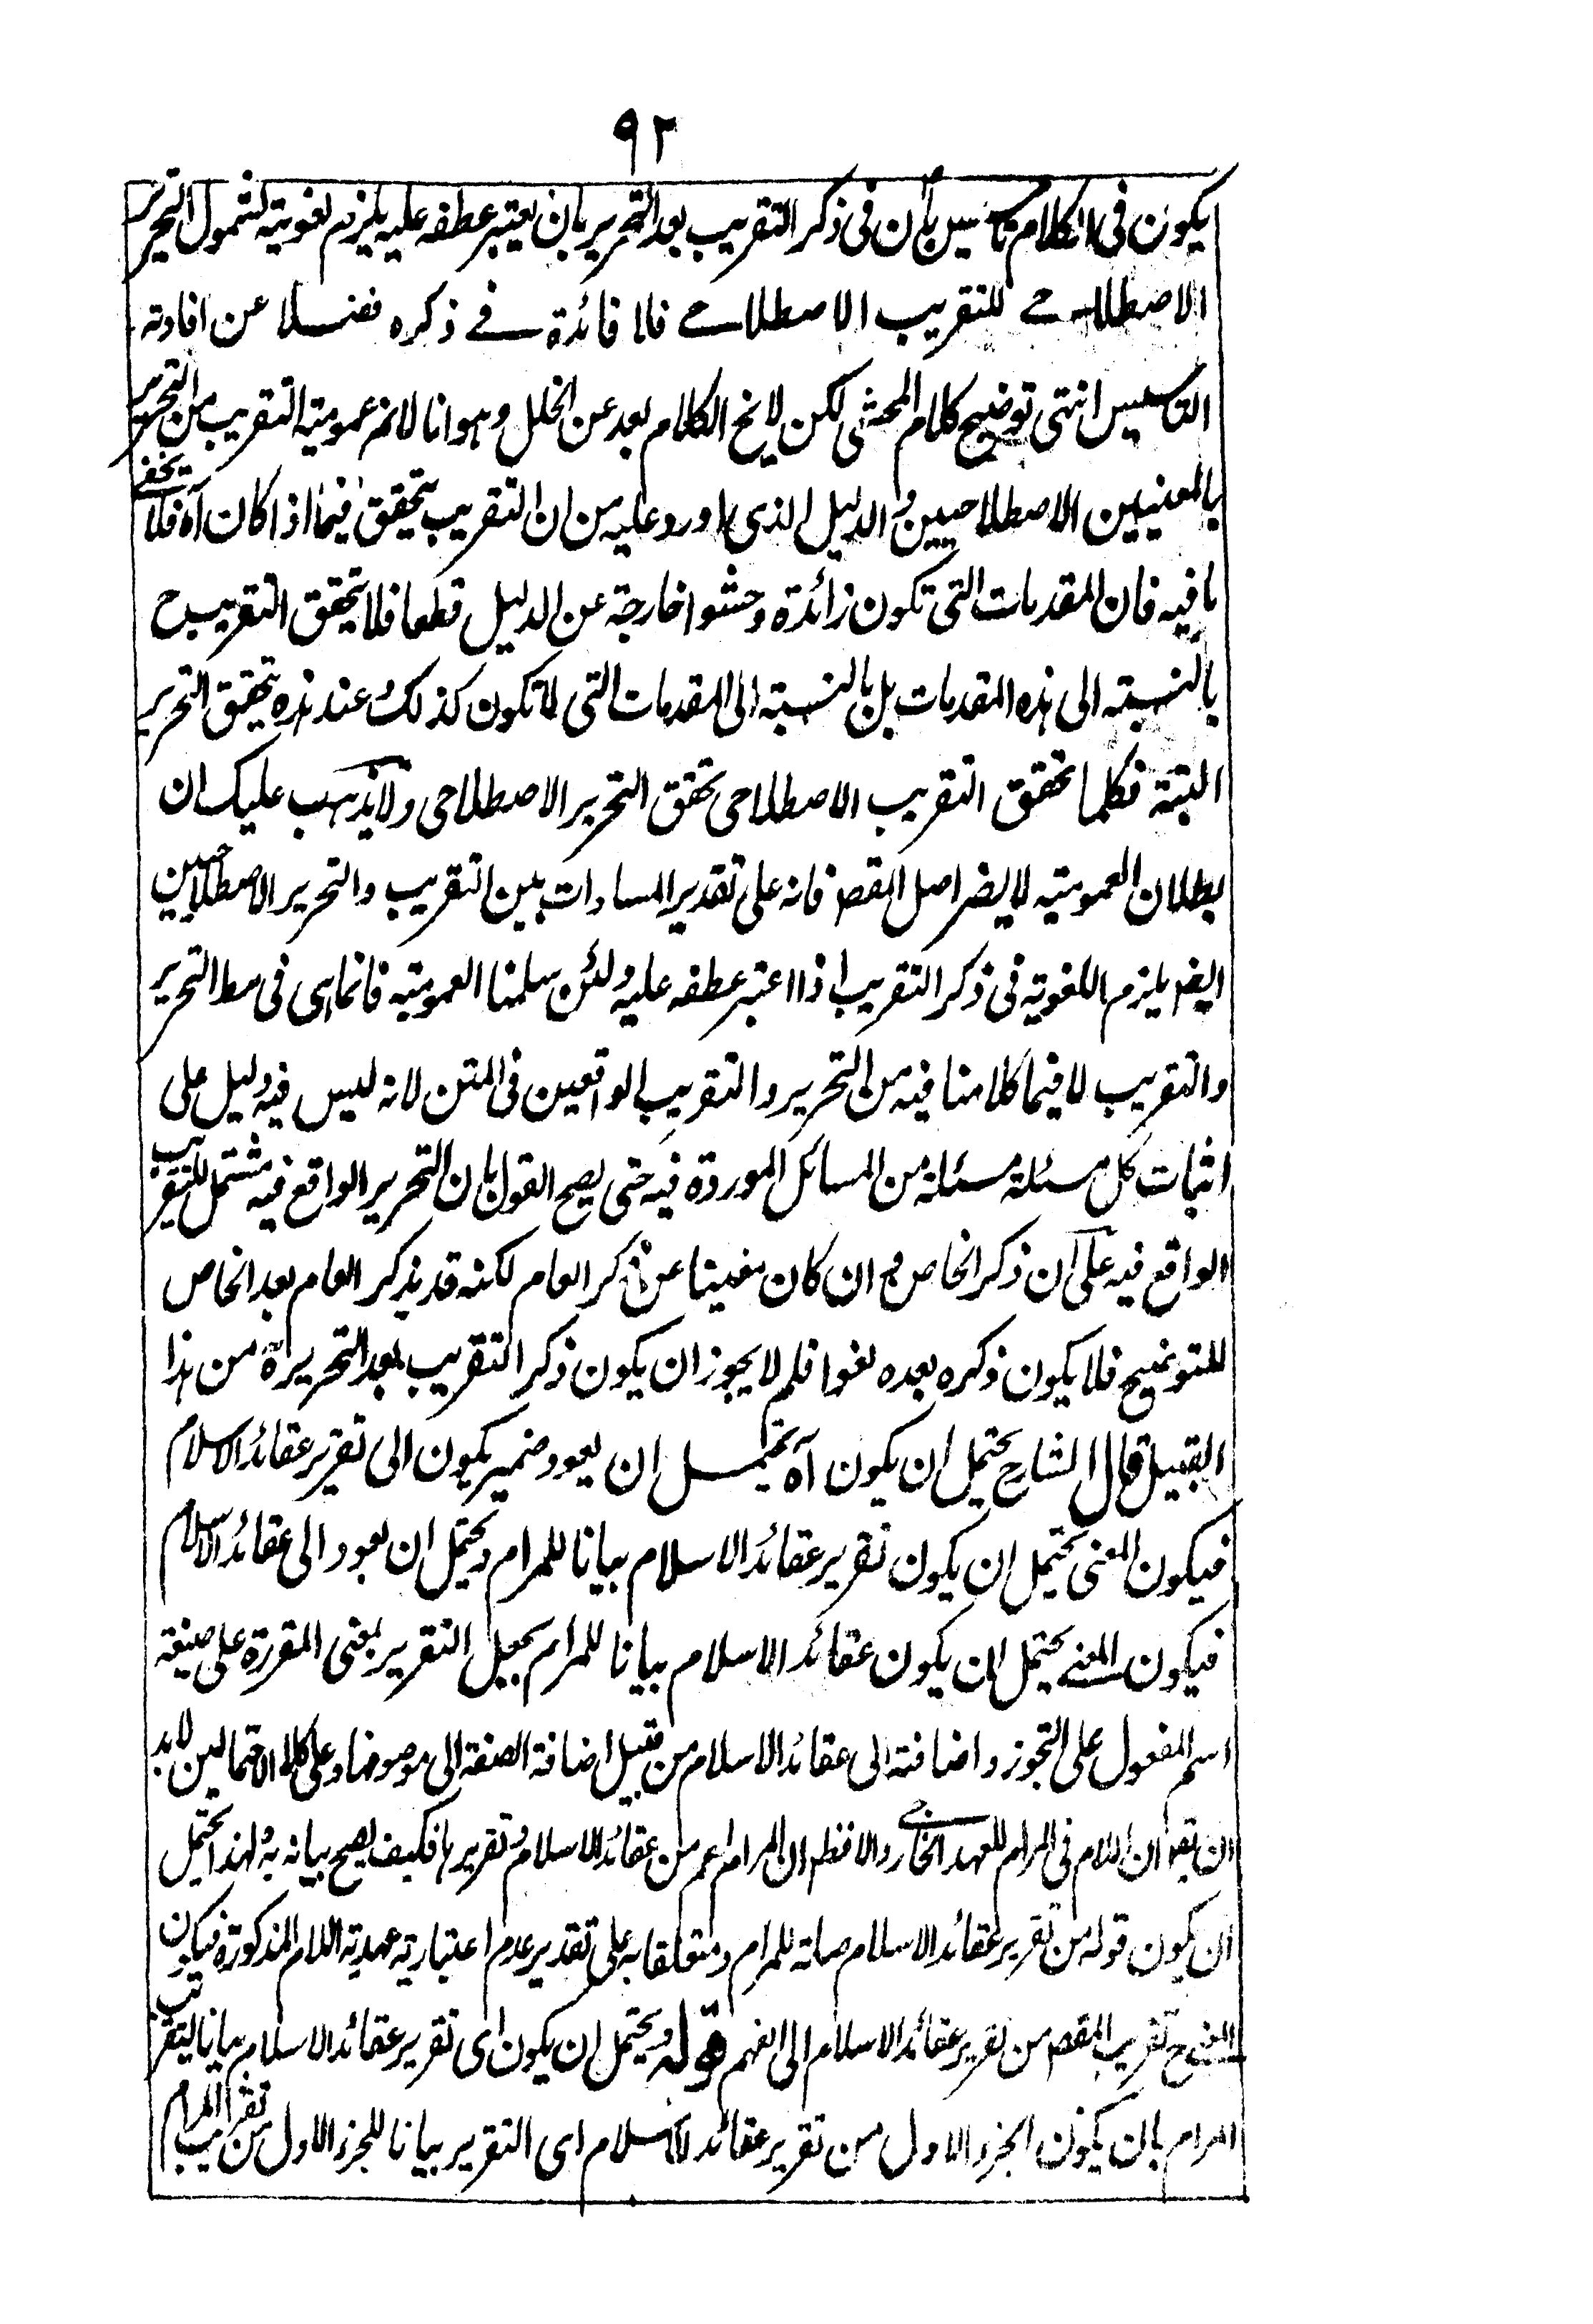 ٩٢
يكون فى الكلام تاسيس بأن فى ذكر التقريب بعد التحرير بان يعتبر عطفه عليه يلزم لغوية لشمول التحرير
الاصطلاحے للتقريب الاصطلاحے فلا فائدة فے ذكره فضلا عن افادته
التاسيس انتهى توضيح كلام المحشى لكن لا يخ الكلام بعد عن الخلل وهو انا لانم عمومية التقريب من التحرير
بالمعنيين الاصطلاحيين والدليل الذى اورد عليه من ان التقريب يتحقق فيما اذا كان آه فلا يخفى
ما فيه فان المقدمات التى تكون زائدة وحشوا خارجة عن الدليل قطعا فلا يتحقق التقريب ح
بالنسبته الى هذه المقدمات بل بالنسبته الى المقدمات التى لا تكون كذلك وعند هذه يتحقق التحرير
البتة فكلما تحقق التقريب الاصطلاحى تحقق التحرير الاصطلاحى ولا يذهب عليك ان
بطلان العمومية لا يضر اصل المقص فانه على تقدير المساوات بين التقريب والتحرير الاصطلاحيين
ايض يلزم اللغوية فى ذكر التقريب اذا اعتبر عطفه عليه ولئن سلمنا العمومية فانما هى فى مط التحرير
والتقريب لا فيما كلامنا فيه من التحرير والتقريب الواقعين فى المتن لانه ليس فيه دليل على
اثبات كل مسئلة مسئلة من المسائل الموردة فيه حتى يصح القول بان التحرير الواقع فيه مشتمل للتقريب
الواقع فيه على ان ذكر الخاص وان كان مغنيا عن ذكر العام لكنه قد يذكر العام بعد الخاص
للتوضيح فلا يكون ذكره بعده لغوا فلم لا يجوز ان يكون ذكر التقريب بعد التحرير من هذا
القبيل قال الشارح يحتمل ان يكون آه يحتمل ان يعود ضمير يكون الى تقرير عقائد الاسلام
فيكون المعنى يحتمل ان يكون تقرير عقائد الاسلام بيانا للمرام ويحتمل ان يعود الى عقائد الاسلام
فيكون المعنے يحتمل ان يكون عقائد الاسلام بيانا للمرام بجعل التقرير بمعنى المقررة على صيغة
اسم المفعول على التجوز واضافته الى عقائد الاسلام من قبيل اضافة الصفة الى موصوفها وعلى كلا الاحتمالين لابد
ان يقو ان اللام فى المرام للعهد الخارجى والا فظم ان المرام اعم من عقائد الاسلام وتقريرها فكيف يصح بيانه به ولهذا يحتمل
ان يكون قوله من تقرير عقائد الاسلام صلة للمرام ومتعلقا به على تقدير عدم اعتبارية عهدية اللام المذكورة فيكون
المعنے ح تقريب المقص من تقرير عقائد الاسلام الى الفهم قوله ويحتمل ان يكون اى تقرير عقائد الاسلام بيانا لتقريب
المرام بان يكون الجزء الاول من تقرير عقائد الاسلام اى التقرير بيانا للجزء الاول من تقريب المرام